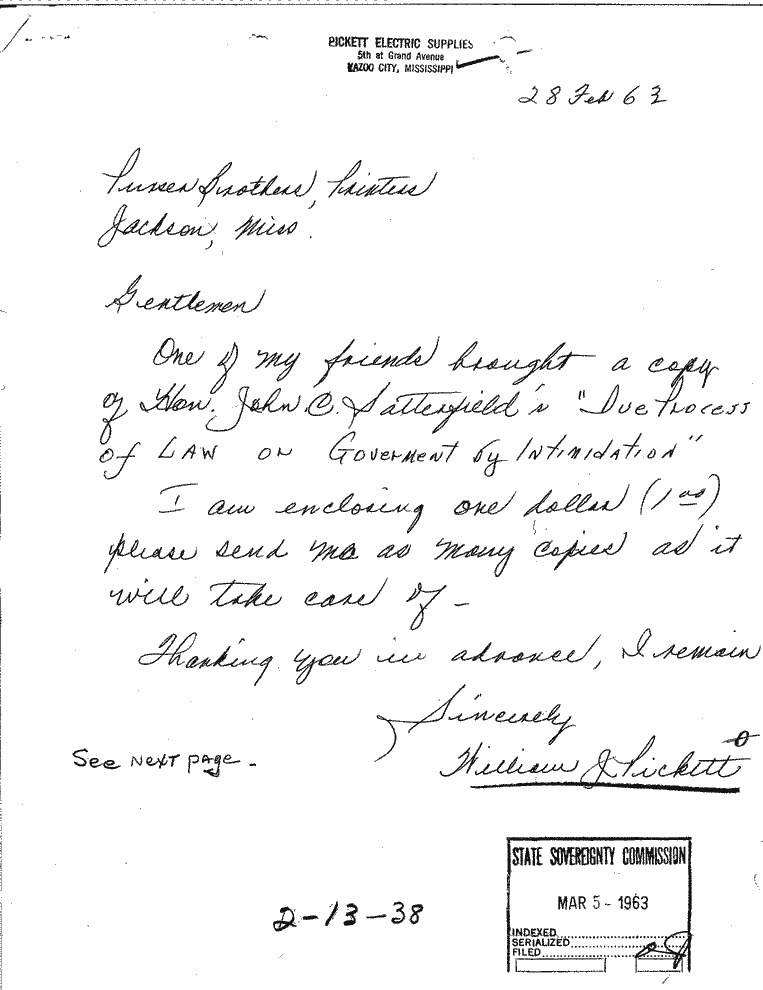 PICKETT ELECTRIC SUPPLIES
5th at Grand Avenue
YAZOO CITY, MISSISSIPPI
28 Feb 63
Brothers, Printers
Jackson, Miss.
Gentlemen
One of my friends brought a copy
of Hon. John C. Satterfield's "Due Process
of LAW or Goverment by Intimidation"
I am enclosing one dollar (1 00)
please send me as many copies as it
will take care of -
Thanking you in advance, I remain
Sincerely
William J Pickett
See NEXT page -
2-13-38
STATE SOVEREIGNTY COMMISSION
MAR 5 - 1963
INDEXED
SERIALIZED
FILED